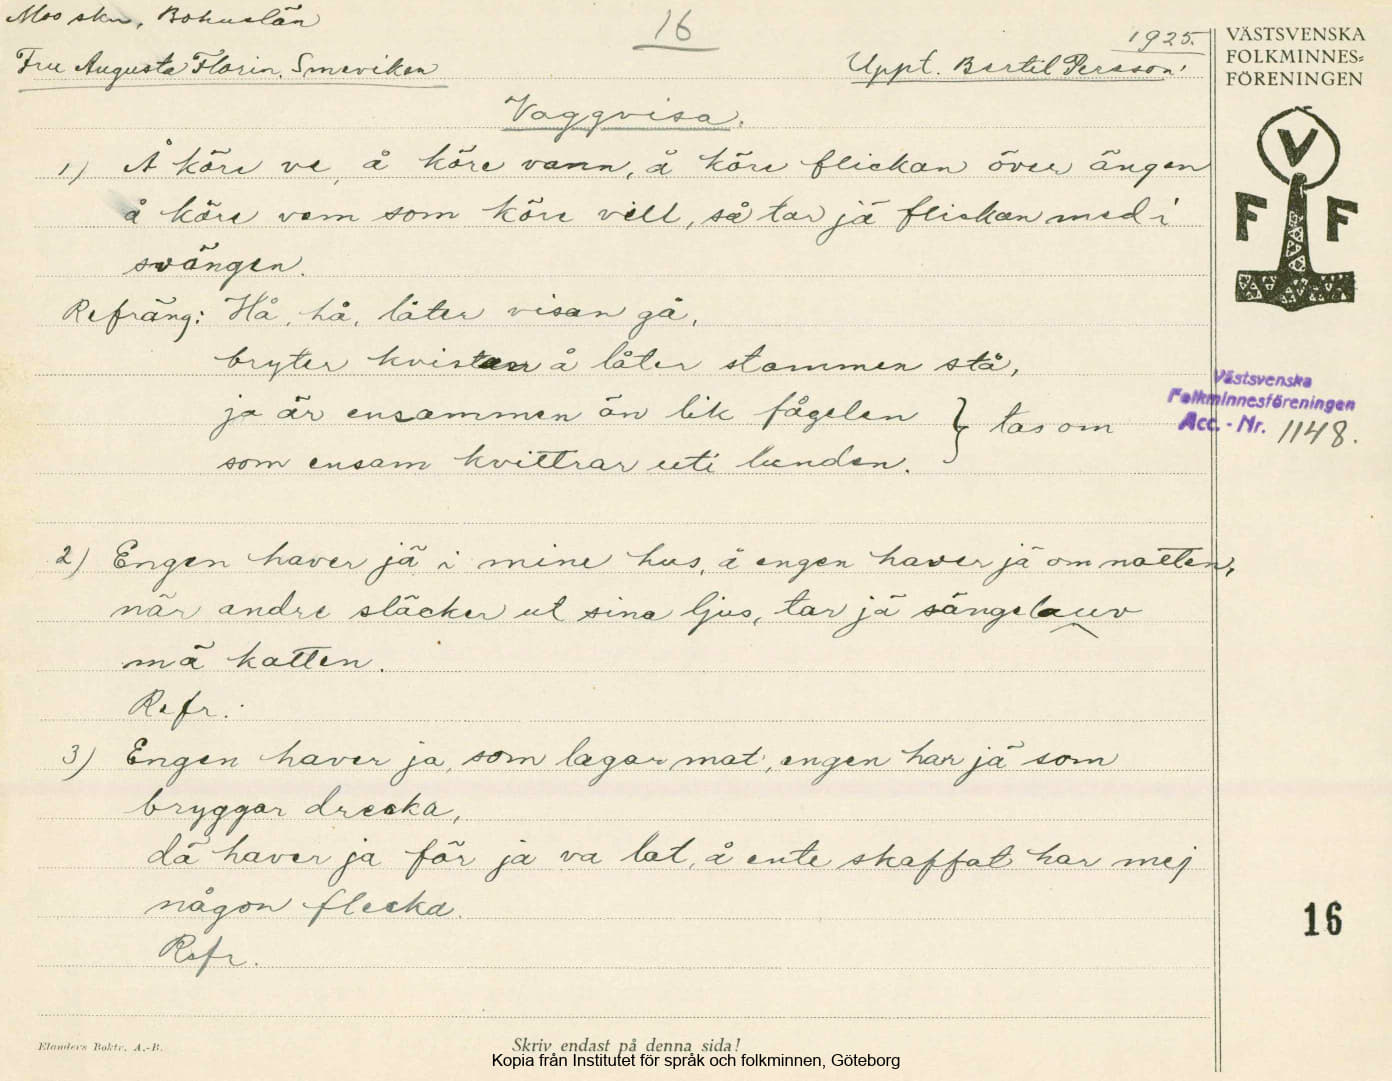 Moo skn, Bohuslän
16
1925.
Fru Augusta Florin, Smeviken
Uppt. Bertil Persson
VÄSTSVENSKA
FOLKMINNES=
FÖRENINGEN
V
F F
Vaggvisa.
1) Å köre ve, å köre vann, å köre flickan över ängen
å köre vem som köre vell, så tar jä fliskan med i
svängen.
Refräng: Hå, hå, låter visan gå,
bryter kvisten å låter stammen stå,
ja är ensammen än lik fågelen
som ensam kvittrar uti lunden. } tas om
Västsvenska
Folkminnesföreningen
Acc. - Nr. 1148.
2) Engen haver jä i mine hus, å engen haver jä om natten,
när andre släcker ut sina ljus, tar jä sängelauv
mä katten.
Refr.:
3) Engen haver ja, som lagar mat, engen har jä som
bryggar drecka,
dä haver ja för ja va lat, å ente skaffat har mej
någon flecka.
Refr.
16
Elanders Boktr. A.-B.
Skriv endast på denna sida!
Kopia från Institutet för språk och folkminnen, Göteborg